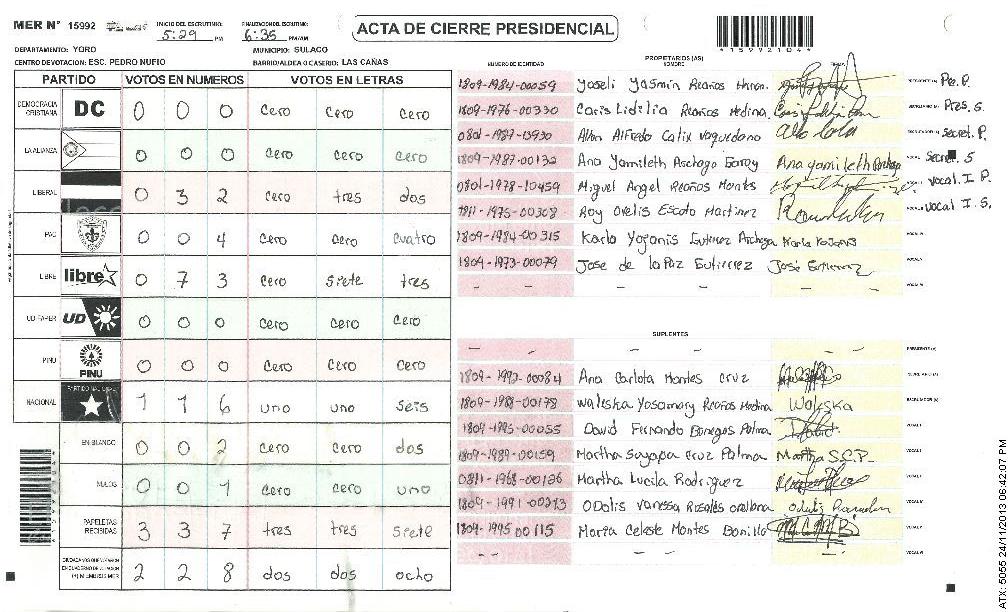 MER N° 15992
INICIO DEL ESCRUTINIO: 5:29 PM
FINALIZACION DEL ESCRUTINIO: 6:35 PM/AM
ACTA DE CIERRE PRESIDENCIAL
*15992104*
DEPARTAMENTO: YORO
MUNICIPIO: SULACO
CENTRO DE VOTACION: ESC. PEDRO NUFIO
BARRIO/ALDEA O CASERIO: LAS CAÑAS
PARTIDO VOTOS EN NUMEROS VOTOS EN LETRAS
DEMOCRACIA CRISTIANA DC 0 0 0 cero cero cero
LA ALIANZA 0 0 0 cero cero cero
LIBERAL 0 3 2 cero tres dos
PAC 0 0 4 cero cero cuatro
LIBRE libre 0 7 3 cero siete tres
UD-FAPER UD 0 0 0 cero cero cero
PINU PINU 0 0 0 cero cero cero
NACIONAL PARTIDO NACIONAL 1 1 6 uno uno seis
EN BLANCO 0 0 2 cero cero dos
NULOS 0 0 1 cero cero uno
PAPELETAS RECIBIDAS 3 3 7 tres tres siete
2 2 8 dos dos ocho
PROPIETARIOS (AS)
NUMERO DE IDENTIDAD NOMBRE FIRMA
1809-1984-00059 Yoseli Yasmin Reaños PRESIDENTE (A) Pre. P.
1809-1976-00330 Caris Lidilia Reaños Medina Pres. S.
0801-1987-13930 Allan Alfredo Calix Vaquedano Secret. P
1809-1987-00132 Ana Yamileth Ana yamileth Secre. S
0801-1978-10459 Miguel Angel Reaños Montes vocal. I P.
1811-1975-00308 Roy Ovelis Escoto Martinez vocal I. S.
1809-1984-00315 Karla Yojanis Gutierrez
1809-1973-00079 Jose de la Paz Gutierrez Jose Gutierrez
- - - -
SUPLENTES
- - - - - -
1809-1992-00084 Ana Carlota Montes Cruz
1809-1988-00178 Waleska Yosomary Reaños Medina Waleska
1809-1995-00055 David Fernando Banegas Palma David
1809-1989-00159 Martha Suyapa Cruz Palma Martha S.C.P.
0811-1968-00126 Martha Lucila Rodriguez
1809-1991-00273 Odalis Vanessa Rosales Orellana
1809-1995 00115 Maria Celeste Montes Bonilla
ATX: 5055 24/11/2013 06:42:07 PM